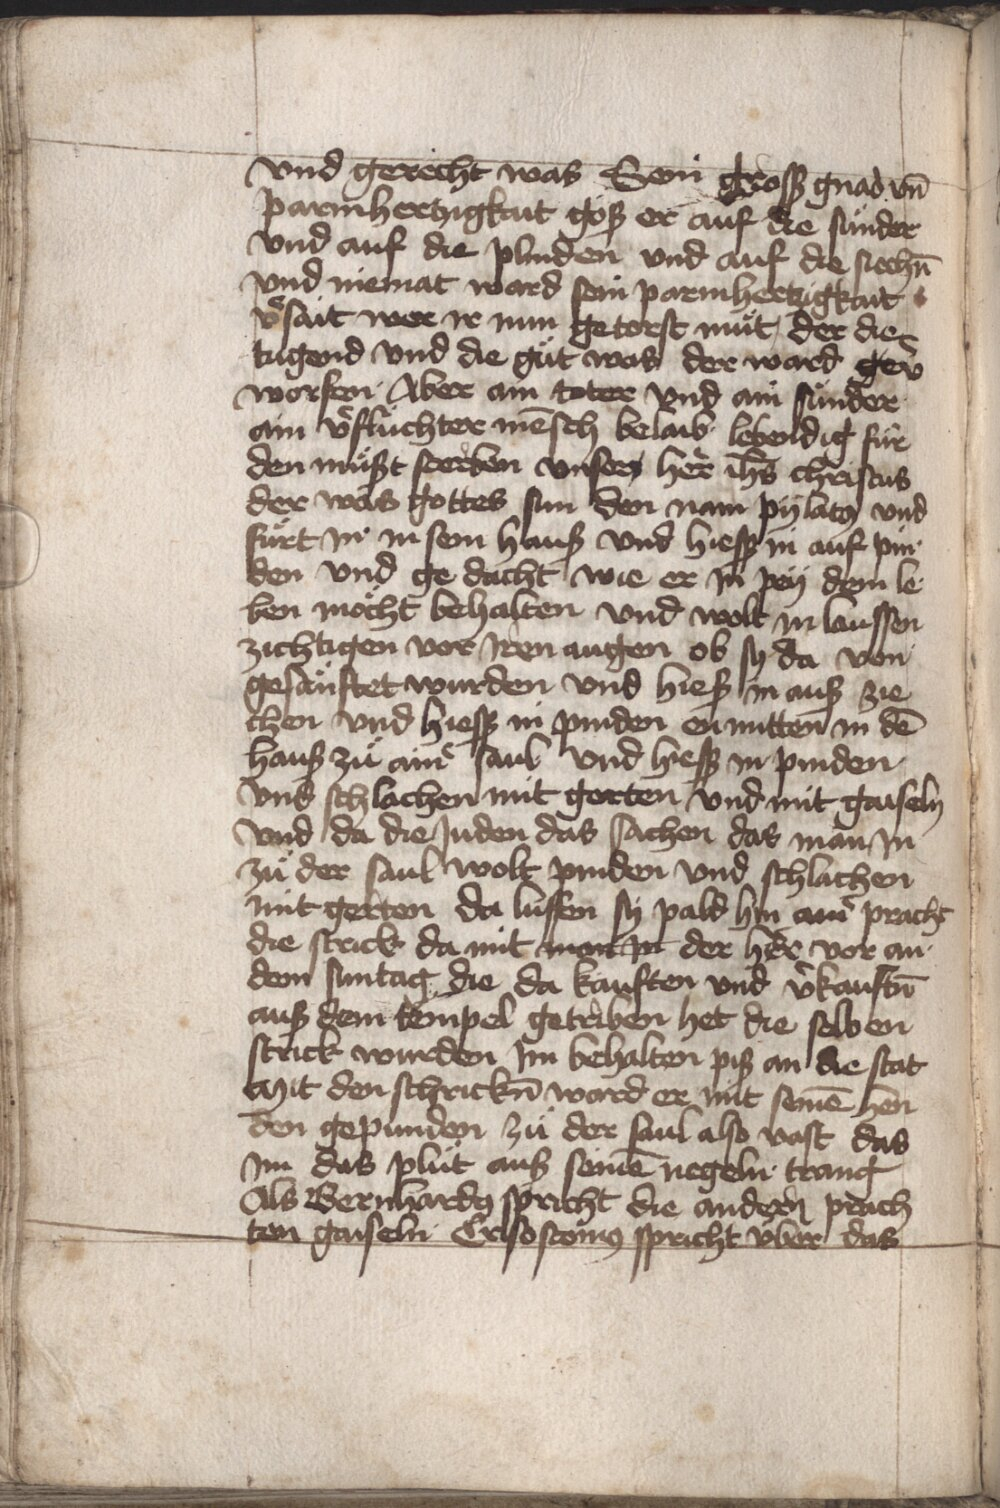 vnd gerecht was Sein gross gnad vn̄
parmhertzigkait goß er auf die sünder
vnd auf die plinden vnd auf die siechn̄
vnd niemat ward sein parmhertzigkait
v̾sait wer ir nun getorst müt der die
tugend vnd die güt was der ward gev̾
worfen Aber ain toter vnd ain sünder
ain v̾flüchter mēsch belaib lebendig für
den müßt sterben vnser her ihs̄ christus
der was gottes sun den nam pylatꝰ vnd
fürt in in sein hauß vnd hiess in auf pin
den vnd ge dacht wie er in pey dem le
ben möcht behalten vnd wolt in laussen
zichtigen vor iren augen ob sy da von
gesänftet wurden vnd hieß in auß zie
chen vnd hiess in pinden en mitten in dē
hauß zü ain̾ saul vnd hiess in pinden
vnd schlachen mit gerten vnd mit gaiseln
vnd da die Juden das sachen das man in
zü der saul wolt pinden vnd schlachen
mit gerten da luffen sy pald hin ain̾ pracht
die strick da mit man in der her vor an
dem suntag die da kauften vnd v̾kauftn̄
auß dem tempel getriben het die selben
strick wurden im behalten piß an die stat
Mit den schrickn̄ ward er mit seinē hen
den gepunden zü der saul also vast das
im das plüt auß seinē negeln trang
Als Bernhardꝰ spricht die andern prach
ten gaiseln Crisostomꝰ spricht über das